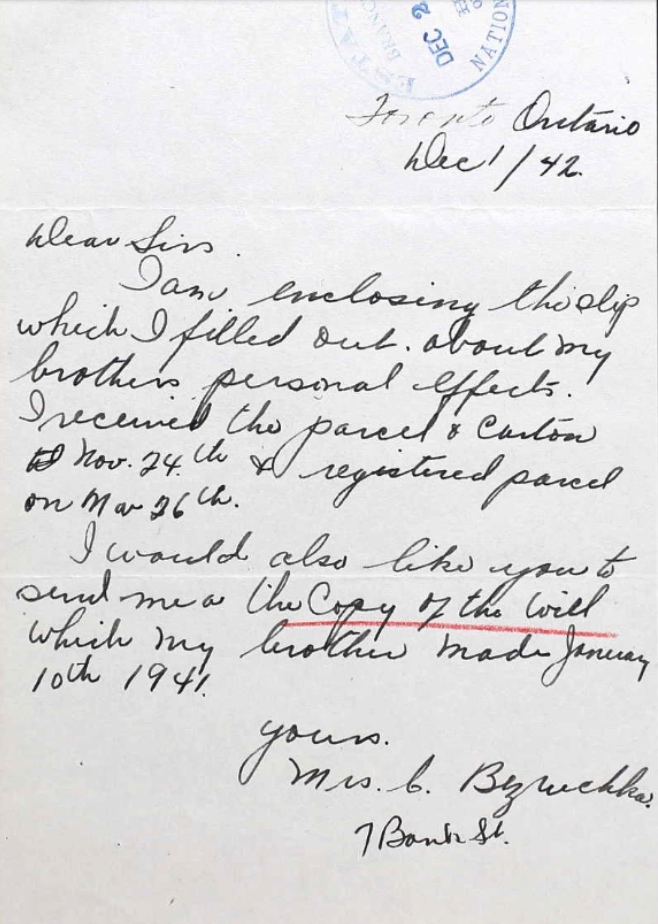 ESTAT
BRANC
DEC 2
NATION
Toronto Ontario
Dec 1/42.
Dear Sirs.
I am enclosing the slip
which I filled out. about my
brothers personal effects.
I received the parcel & Carton
Nov. 24.th & registered parcel
on Nov 26th.
I would also like you to
send me a the Copy of the Will
which my brother made January
10th 1941.
yours.
Mrs. C. Bezruchka.
7 Bank St.